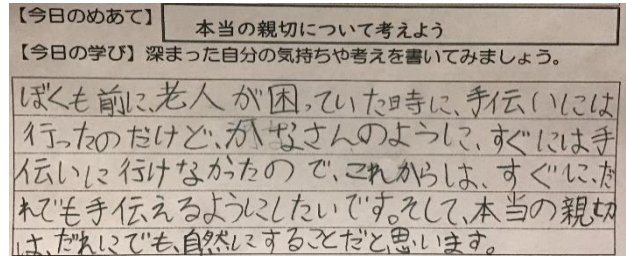 【今日のめあて】 本当の親切について考えよう
【今日の学び】深まった自分の気持ちや考えを書いてみましょう。
ぼくも前に、老人が困っていた時に、手伝いには
行ったのだけど、かなさんのように、すぐには手
伝いに行けなかったので、これからは、すぐに、だ
れでも手伝えるようにしたいです。そして、本当の親切
は、だれにでも、自然にすることだと思います。